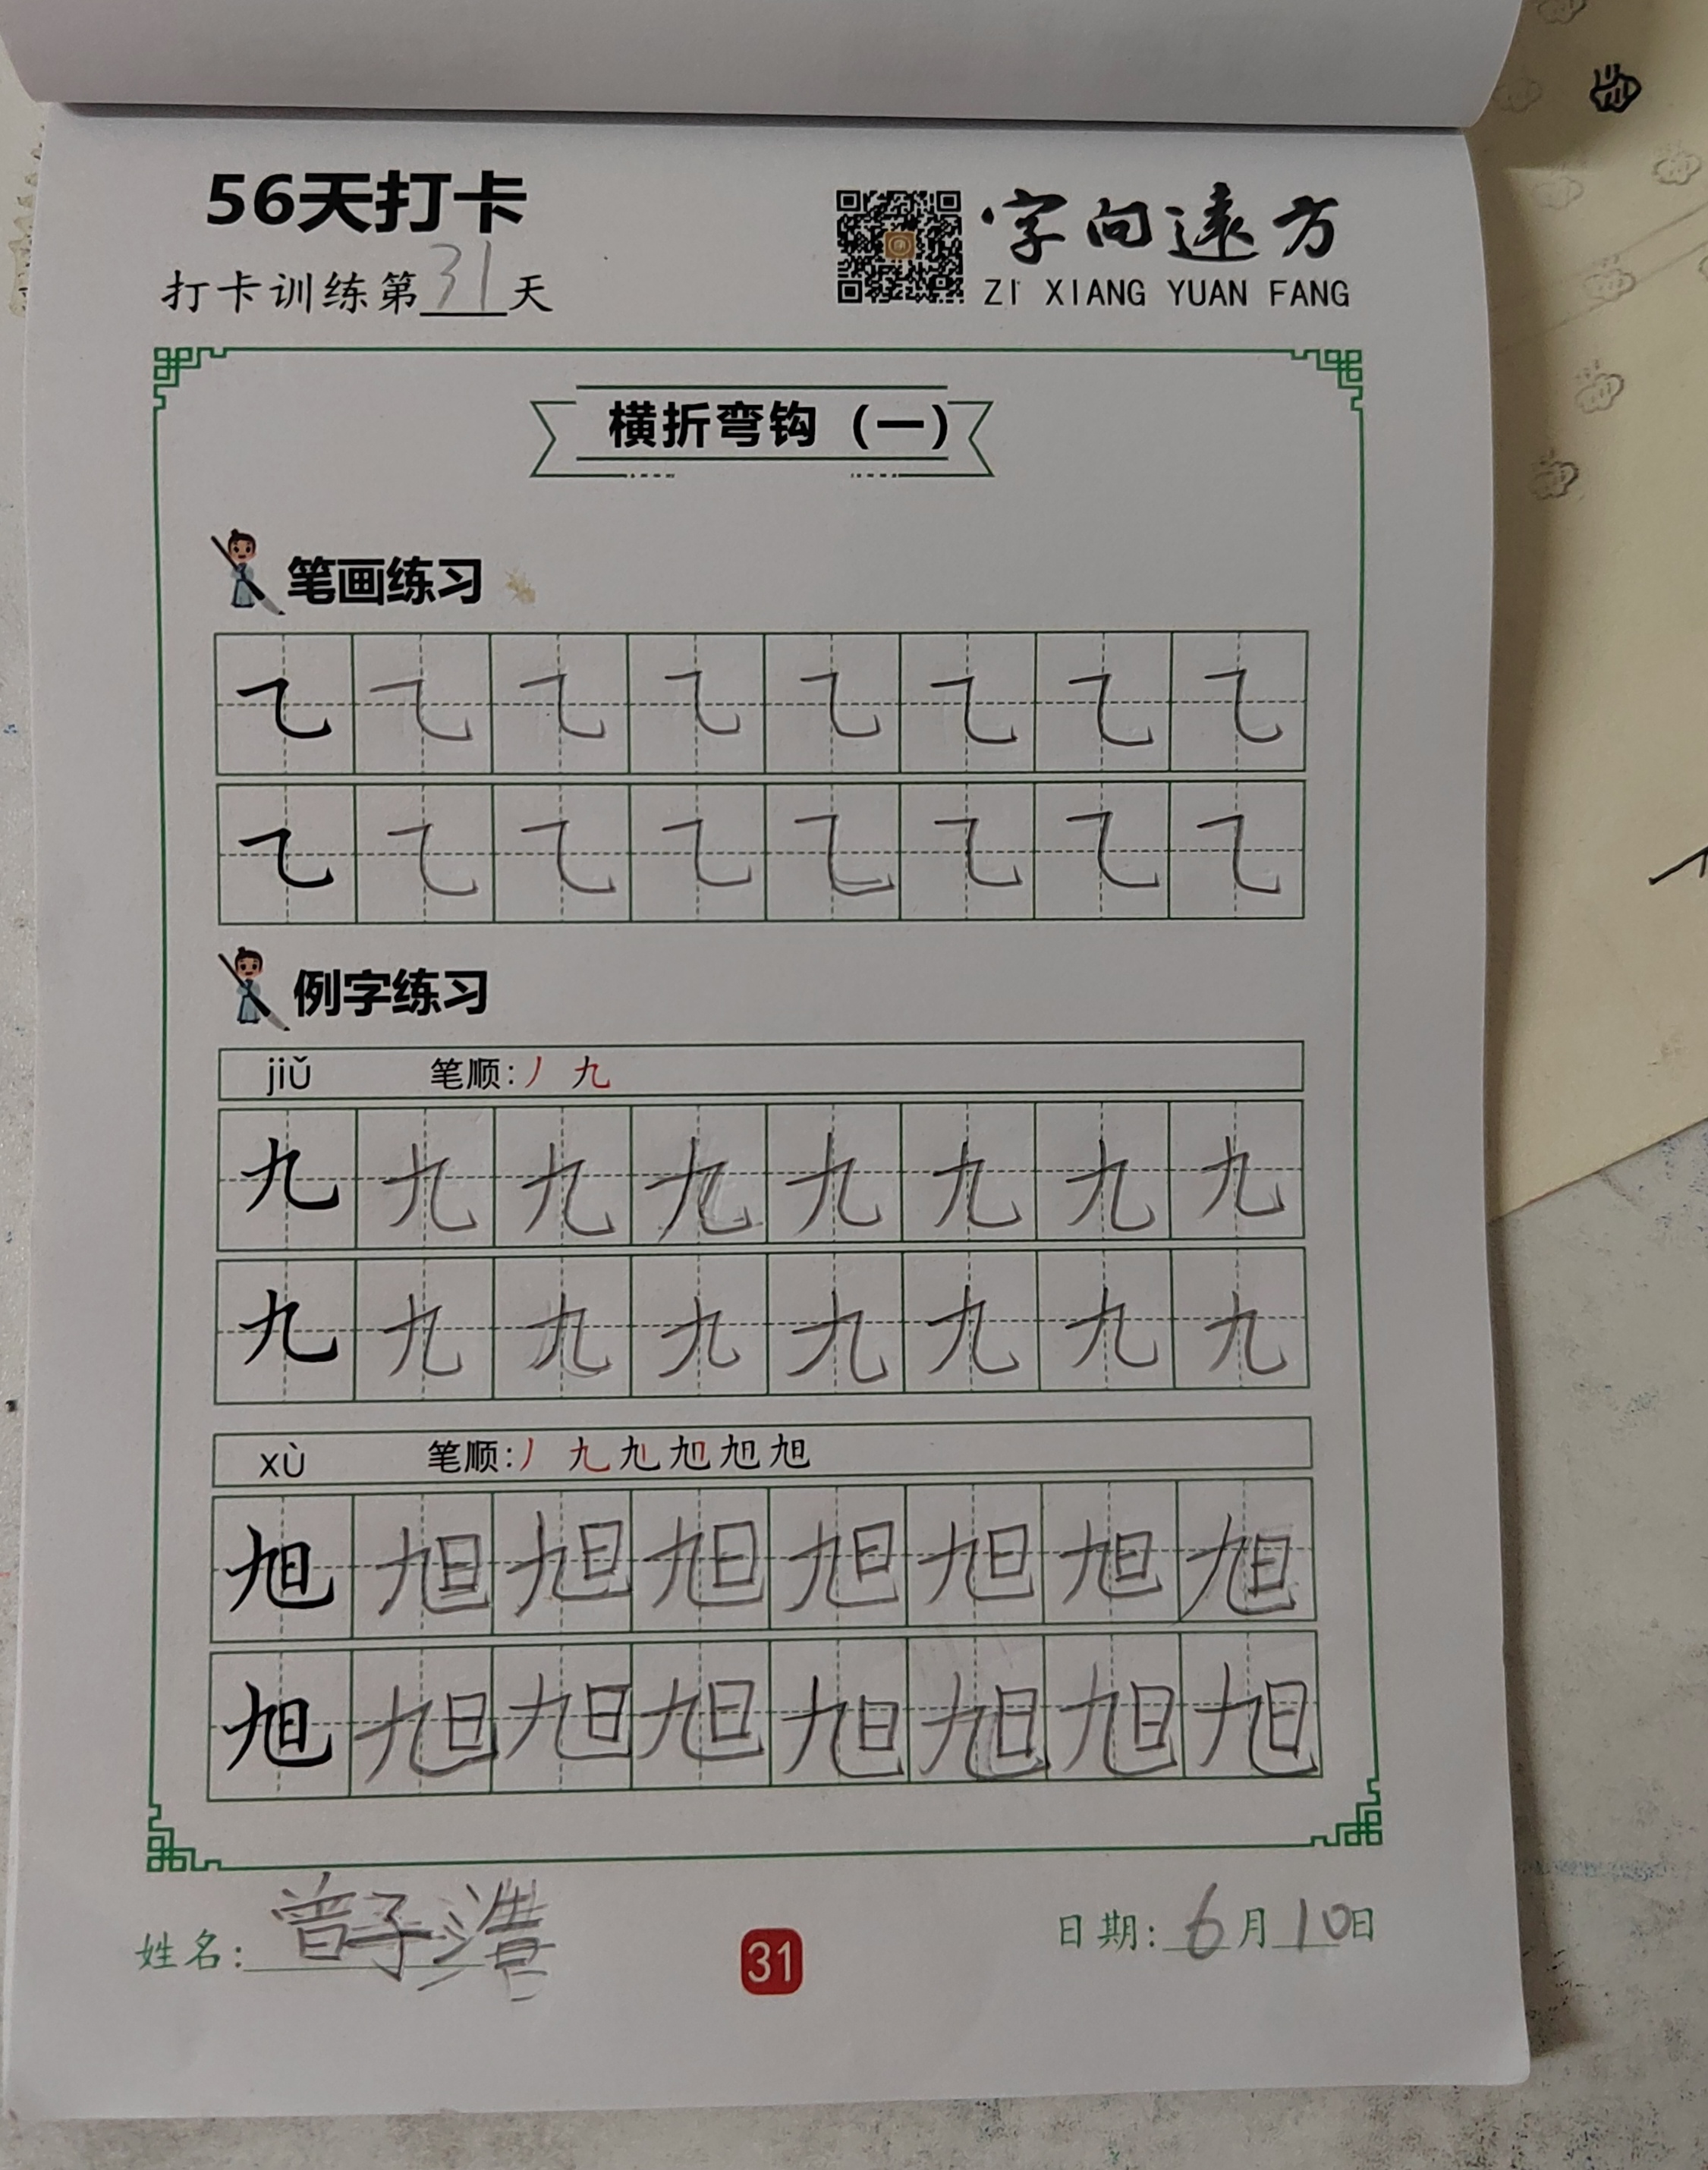 56天打卡
打卡训练第31天
字向遠方
ZI XIANG YUAN FANG
横折弯钩（一）
笔画练习
㇈ ㇈ ㇈ ㇈ ㇈ ㇈ ㇈ ㇈
㇈ ㇈ ㇈ ㇈ ㇈ ㇈ ㇈ ㇈
例字练习
jiǔ 笔顺：丿 九
九 九 九 九 九 九 九 九
九 九 九 九 九 九 九 九
xù 笔顺：丿 九 旭 旭 旭 旭
旭 旭 旭 旭 旭 旭 旭 旭
旭 旭 旭 旭 旭 旭 旭 旭
姓名：曾子
31
日期：6月10日